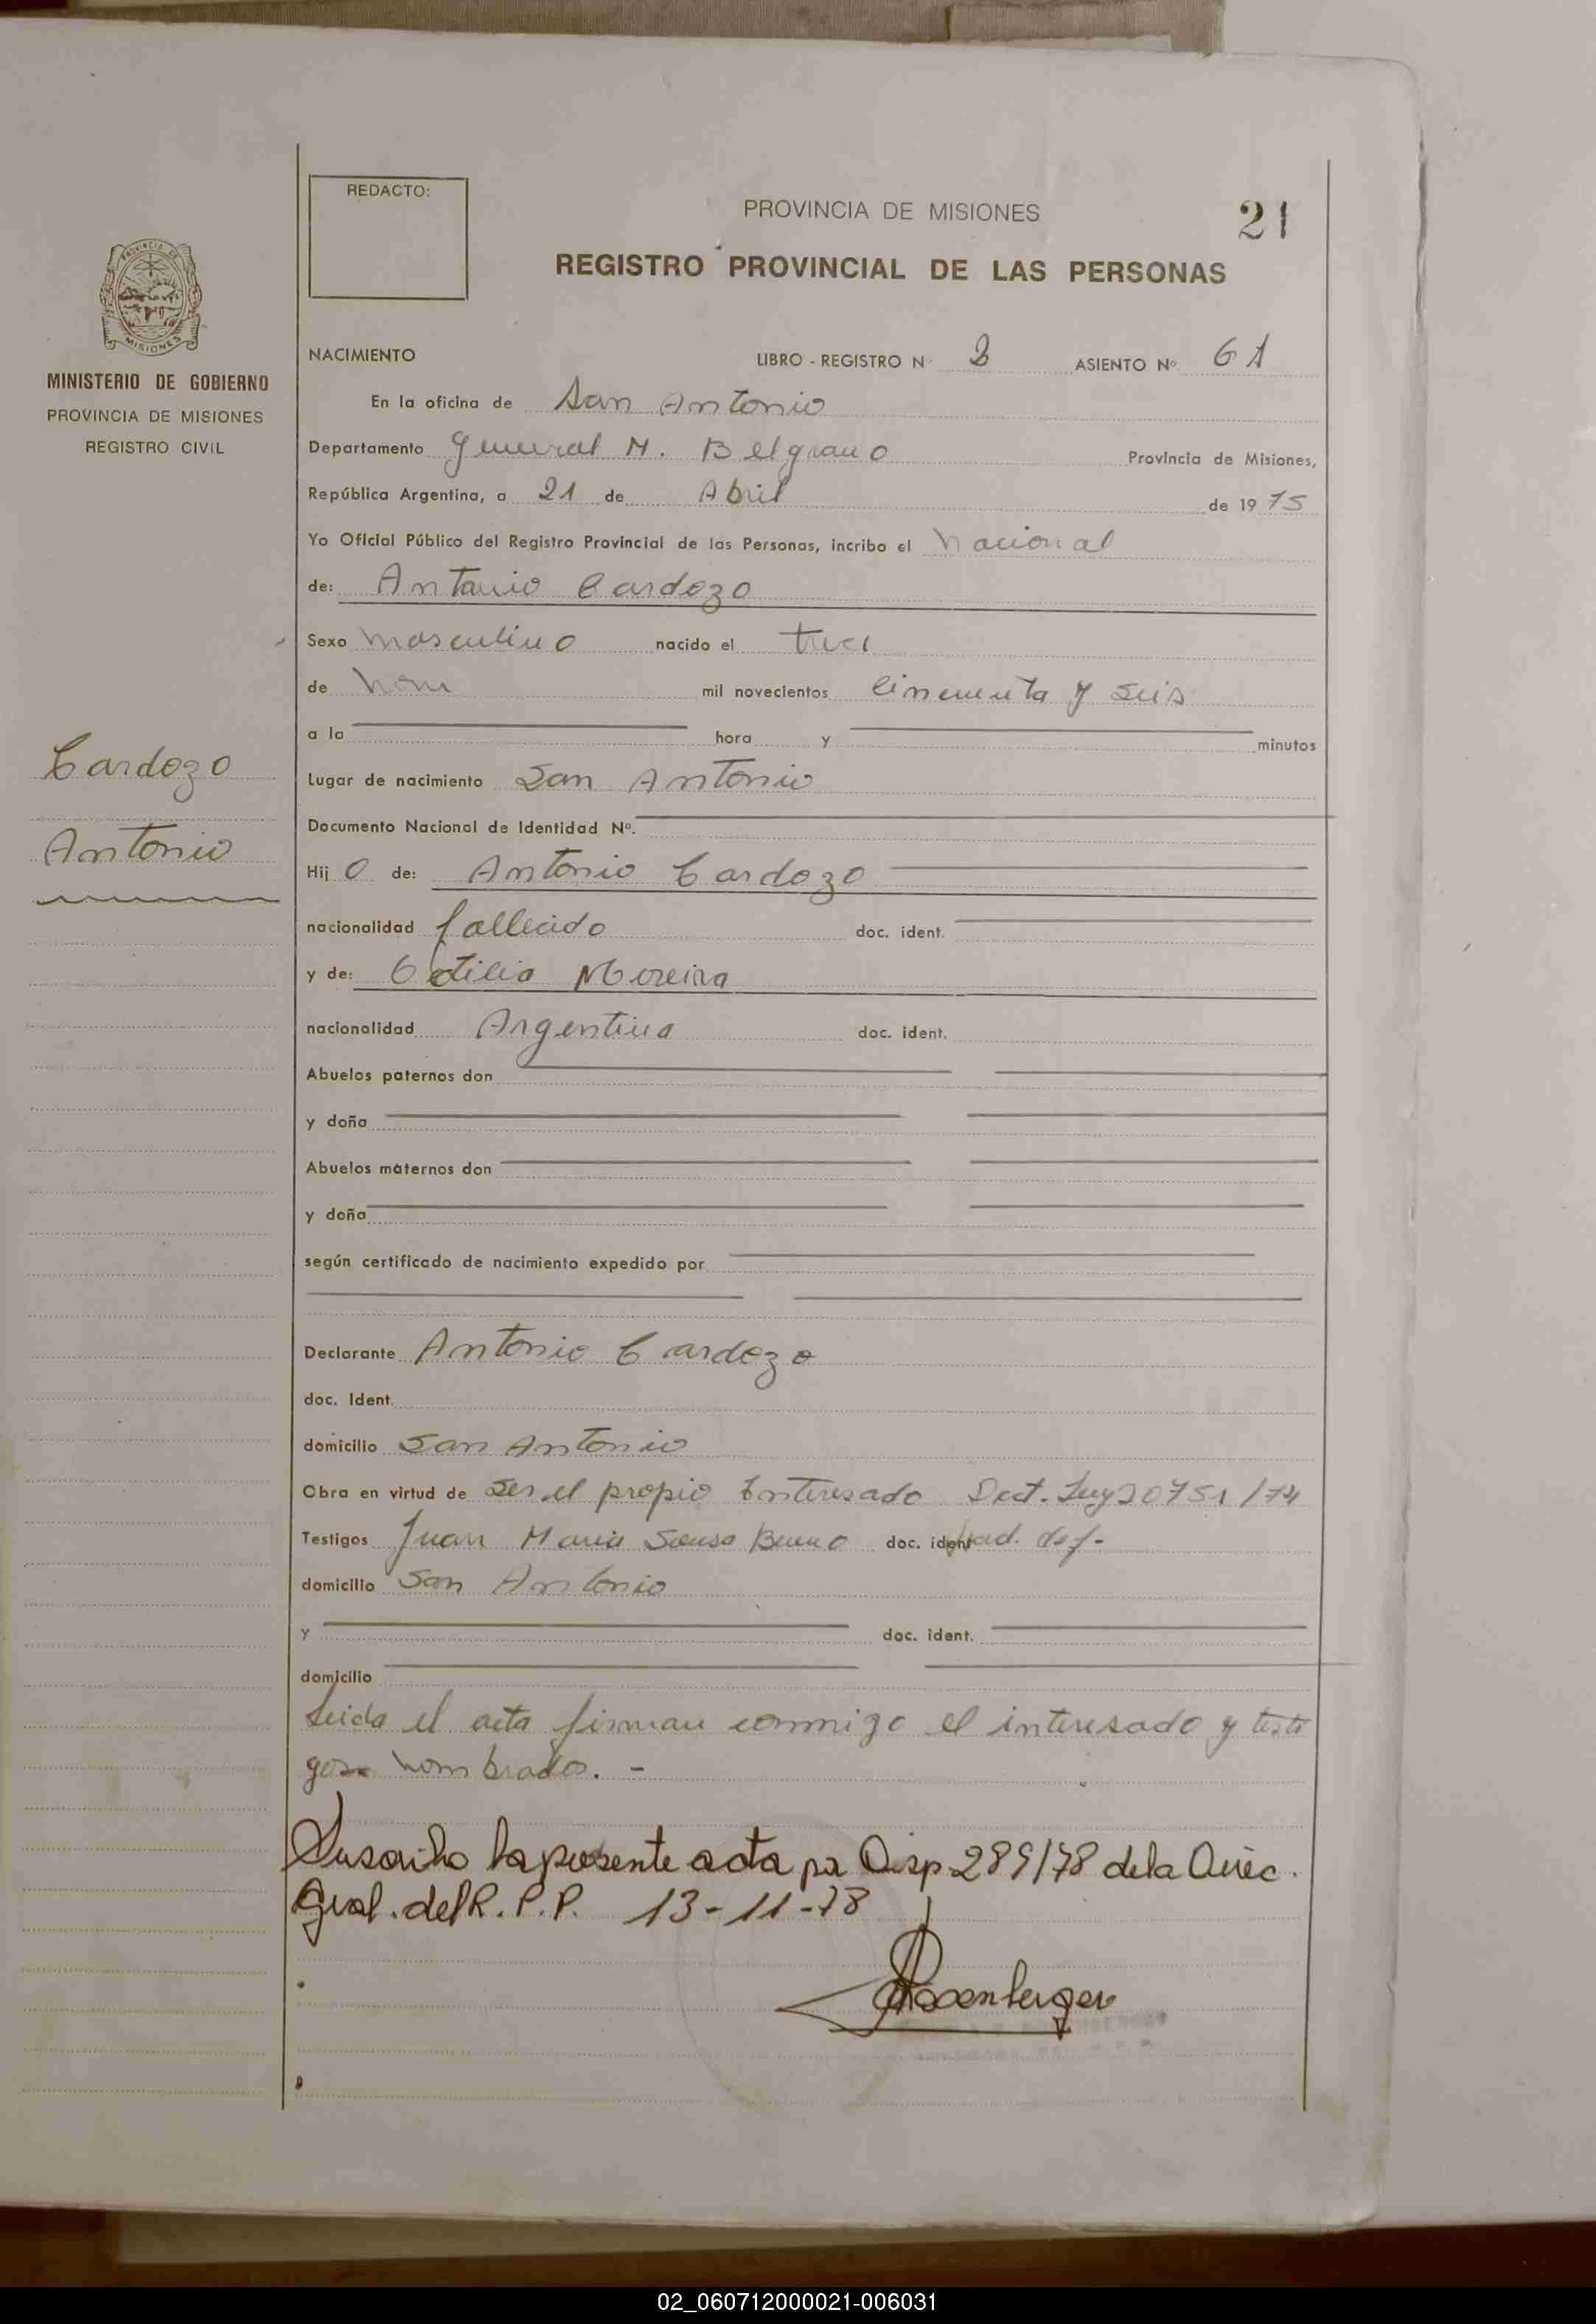 REDACTO:
PROVINCIA DE MISIONES
21
REGISTRO PROVINCIAL DE LAS PERSONAS
PROVINCIA DE
MISIONES
MINISTERIO DE GOBIERNO
PROVINCIA DE MISIONES
REGISTRO CIVIL
NACIMIENTO LIBRO - REGISTRO N° 2 ASIENTO Nº 61
En la oficina de San Antonio
Departamento General M. Belgrano Provincia de Misiones,
República Argentina, a 21 de Abril de 1975
Yo Oficial Público del Registro Provincial de las Personas, incribo el Nacional
de: Antonio Cardozo
Sexo masculino nacido el
de mil novecientos cincuenta y seis
a la hora y minutos
Cardozo
Antonio
Lugar de nacimiento San Antonio
Documento Nacional de Identidad Nº.
Hij o de: Antonio Cardozo
nacionalidad fallecido doc. ident.
y de: Moreira
nacionalidad Argentina doc. ident.
Abuelos paternos don
y doña
Abuelos maternos don
y doña
según certificado de nacimiento expedido por
Declarante Antonio Cardozo
doc. Ident.
domicilio San Antonio
Obra en virtud de ser el propio Interesado Dect. Ley 20751/74
Testigos Juan Maria Bueno doc. ident
domicilio San Antonio
y doc. ident.
domicilio
Leida el acta firman conmigo el interesado y testi
gos nombrados. -
Suscribo la presente acta por Disp 289/78 de la Direc.
Gral. del R.P.P. 13-11-78
02_060712000021-006031